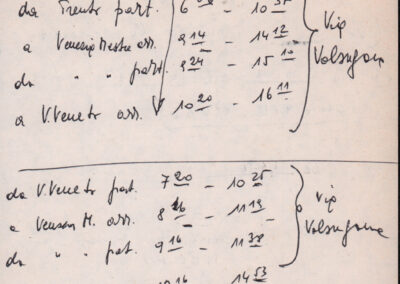 da Trento part. 6 – 10 35
a Venezia Mestre arr. 9 14 – 14 12
da " " part. 9 24 – 15 10
a V.Veneto arr. 10 20 – 16 11
Via Valsugana
da V.Veneto part. 7 20 – 10 25
a M. arr. 8 – 11 19
da " " part. 9 16 – 11 38
14 53
Via Valsugana